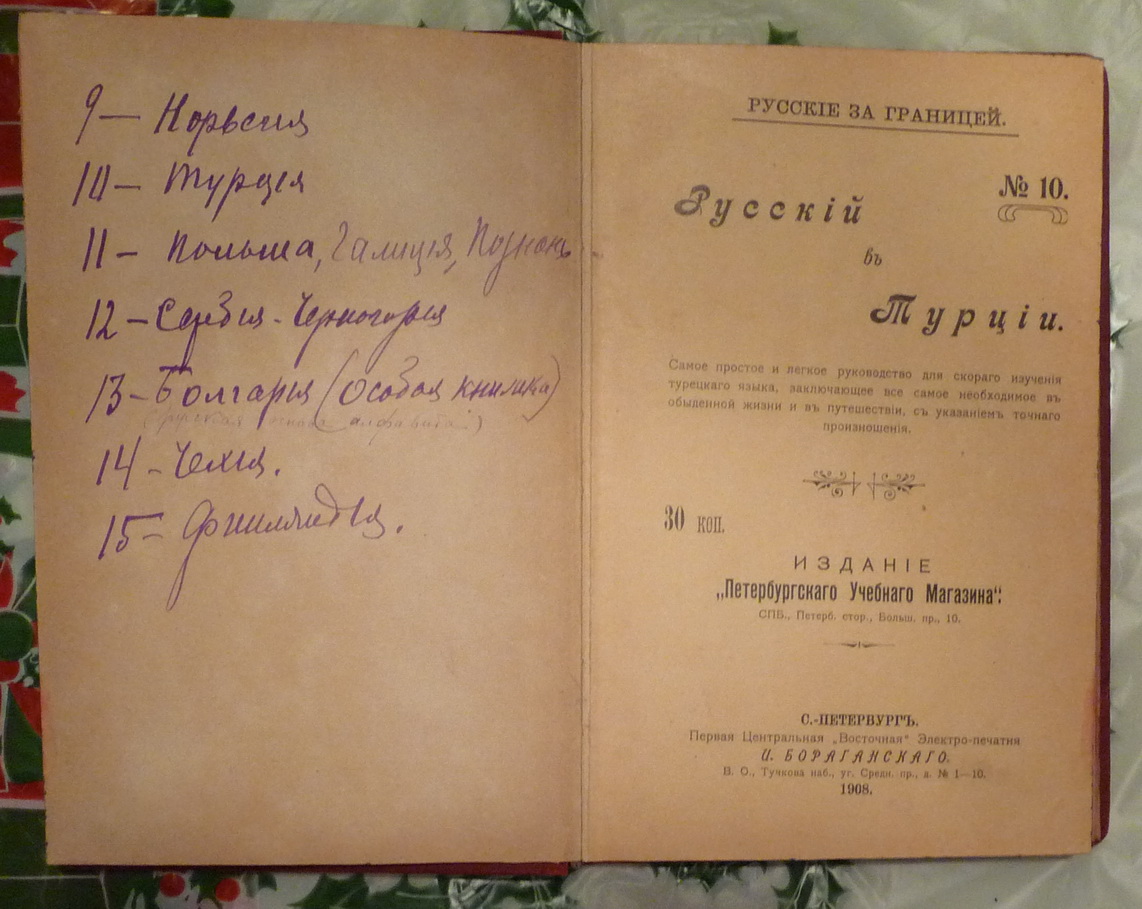 9 — Норвегия
10 — Турція
11 — Польша, Галиція, Познань
12 — Сербія - Черногорія
13 — Болгарія (особая книжка)
14 - Чехія.
15 — Финляндія.
РУССКІЕ ЗА ГРАНИЦЕЙ.
№ 10.
Русскій
въ
Турціи.
Самое простое и легкое руководство для скораго изученія
турецкаго языка, заключающее все самое необходимое въ
обыденной жизни и въ путешествіи, съ указаніемъ точнаго
произношенія.
30 коп.
ИЗДАНІЕ
„Петербургскаго Учебнаго Магазина“:
СПБ., Петерб. стор., Больш. пр., 10.
С.-ПЕТЕРБУРГЪ.
Первая Центральная „Восточная“ Электро-печатня
И. БОРАГАНСКАГО.
В. О., Тучкова наб., уг. Средн. пр., д. № 1—10.
1908.